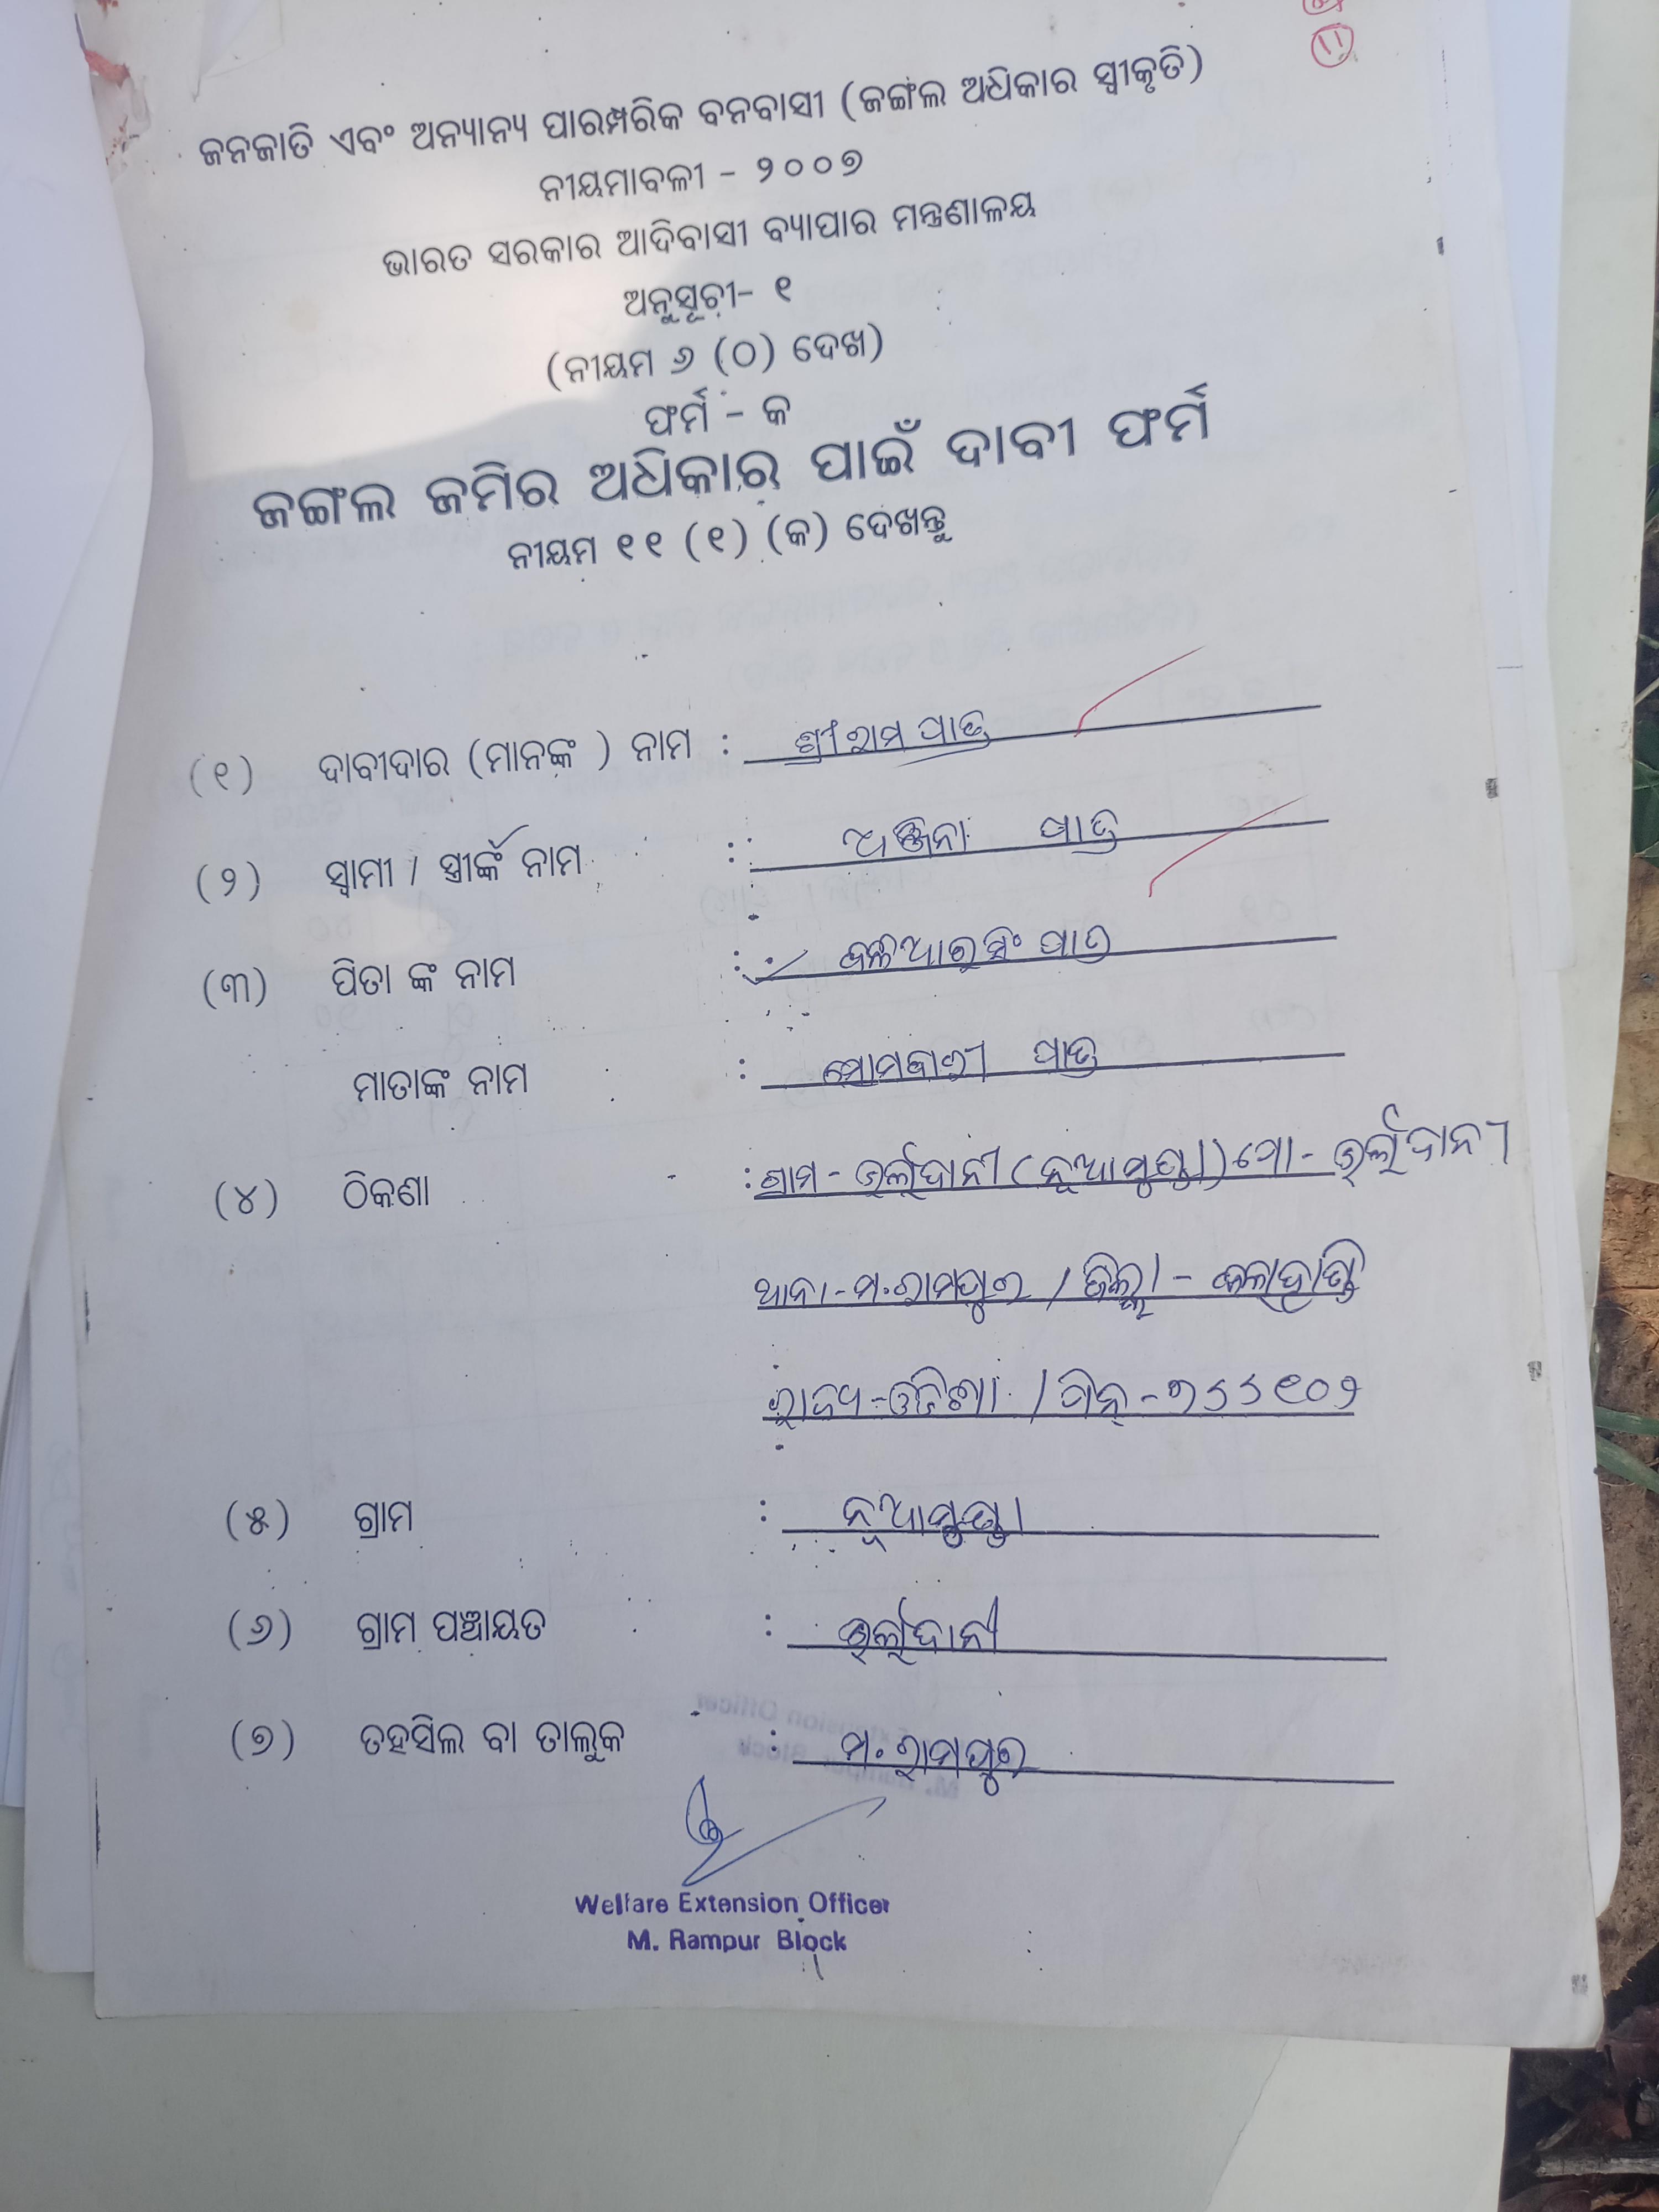 ୧୧
ଜନଜାତି ଏବଂ ଅନ୍ୟାନ୍ୟ ପାରମ୍ପରିକ ବନବାସୀ (ଜଙ୍ଗଲ ଅଧିକାର ସ୍ୱୀକୃତି)
ନୀୟମାବଳୀ - ୨୦୦୭
ଭାରତ ସରକାର ଆଦିବାସୀ ବ୍ୟାପାର ମନ୍ତ୍ରଣାଳୟ
ଅନୁସୂଚୀ- ୧
(ନୀୟମ ୬ (୦) ଦେଖ)
ଫର୍ମ - କ
ଜଙ୍ଗଲ ଜମିର ଅଧିକାର ପାଇଁ ଦାବୀ ଫର୍ମ
ନୀୟମ ୧୧ (୧) (କ) ଦେଖନ୍ତୁ
(୧) ଦାବୀଦାର (ମାନଙ୍କ ) ନାମ : ଶ୍ରୀରାମ ପାତ୍ର
(୨) ସ୍ୱାମୀ / ସ୍ତ୍ରୀଙ୍କ ନାମ : ଅଞ୍ଜନା ପାତ୍ର
(୩) ପିତା ଙ୍କ ନାମ : ପାତ୍ର
ମାତାଙ୍କ ନାମ : ସୋମବାରୀ ପାତ୍ର
(୪) ଠିକଣା : ଗ୍ରାମ - (ନୂଆପୁଡ଼ା) ପୋ -
ଥାନା - ମ.ରାମପୁର / ଜିଲ୍ଲା - କଳାହାଣ୍ଡି
ରାଜ୍ୟ - ଓଡିଶା / ପିନ୍ - ୭୬୬୧୦୨
(୫) ଗ୍ରାମ : ନୂଆପୁଡ଼ା
(୬) ଗ୍ରାମ ପଞ୍ଚାୟତ :
(୭) ତହସିଲ ବା ତାଲୁକ : ମ.ରାମପୁର
Welfare Extension Officer
M. Rampur Block